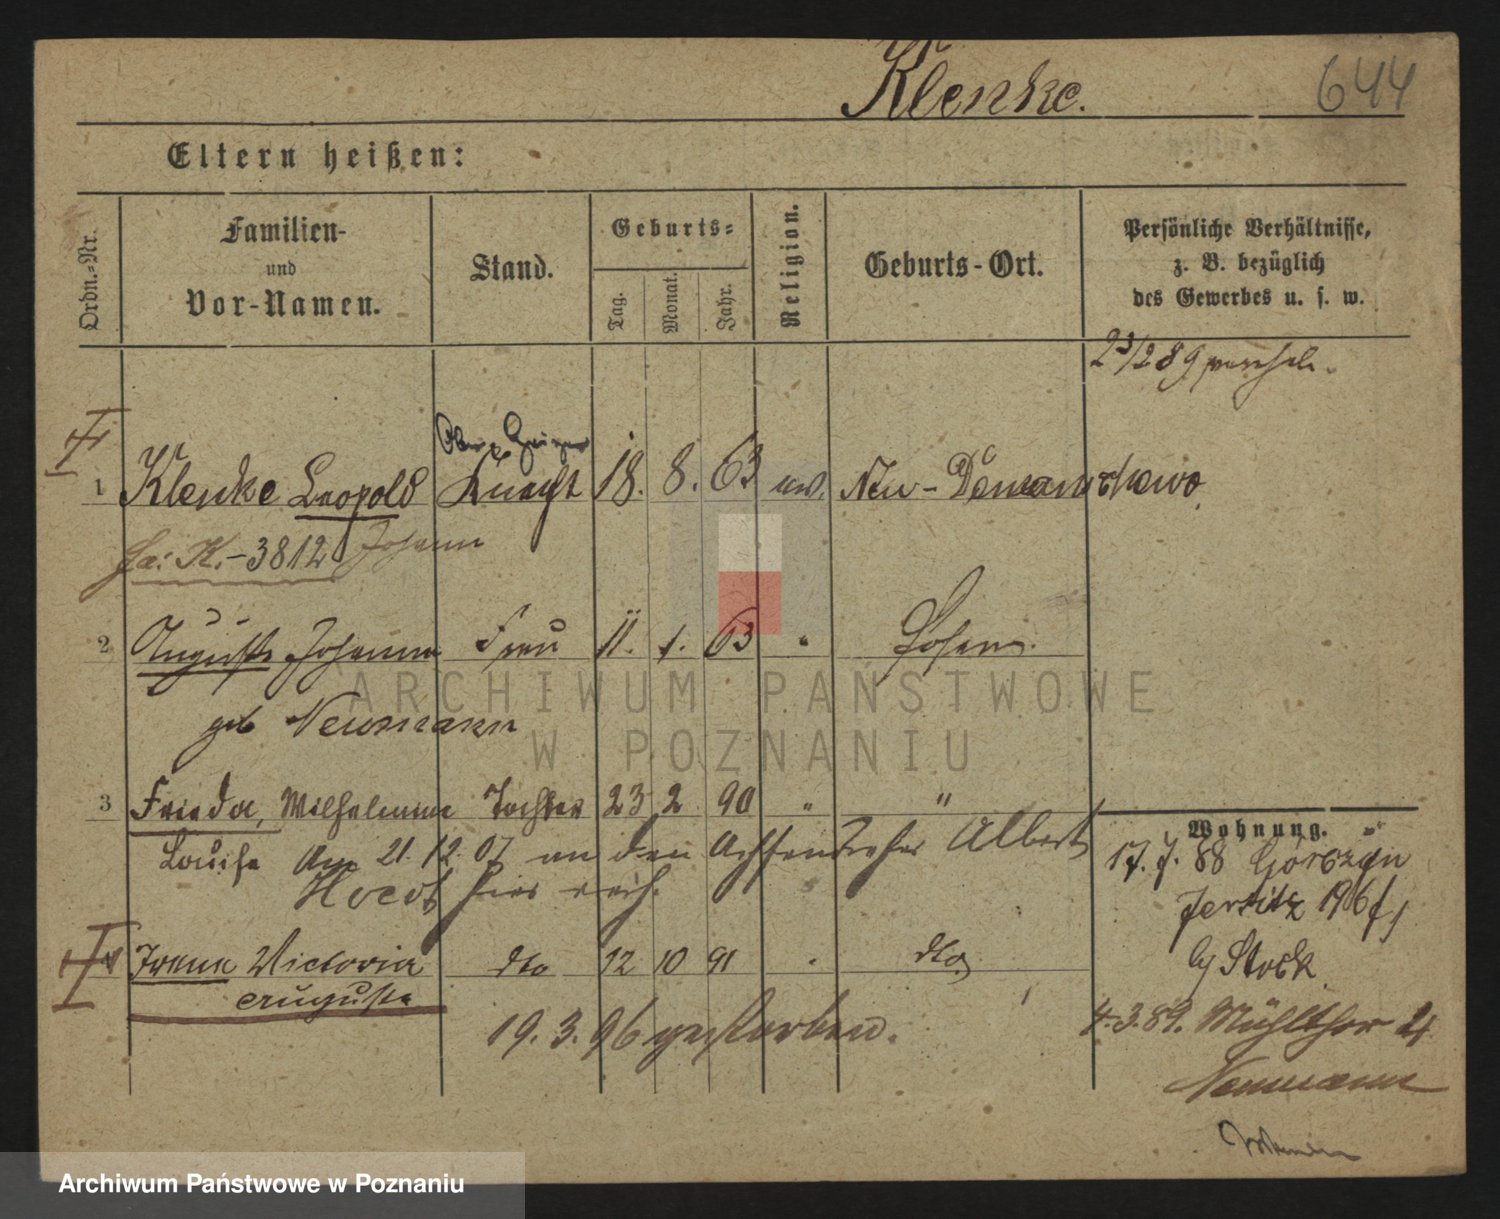 Klenke.
644
Eltern heißen:
Ordn.-Nr.
Familien-
und
Vor-Namen.
Stand.
Geburts-
Tag.
Monat.
Jahr.
Religion.
Geburts-Ort.
Persönliche Verhältnisse,
z. B. bezüglich
des Gewerbes u. s. w.
23/2 89
1 Klenke Leopold Knecht 18. 8. 63 ev. Neu-Demantschewo
fa: K.-3812 Johann
2 Auguste Johanna Frau 11. 1. 63 "
geb Neumann
3 Frieda, Wilhelmine Tochter 23 2 90 " "
Louise Am 21. 12. 07 an den Albert
hier
Wohnung.
17. 7. 88 Górczyn
Jersitz 196f
by Stock
4 Irene Victoria dto 12 10 91 " dto
Auguste
19. 3. 96 gestorben.
4.3.89. Mühlthor 24
Neumann
ARCHIWUM PAŃSTWOWE
W POZNANIU
Archiwum Państwowe w Poznaniu